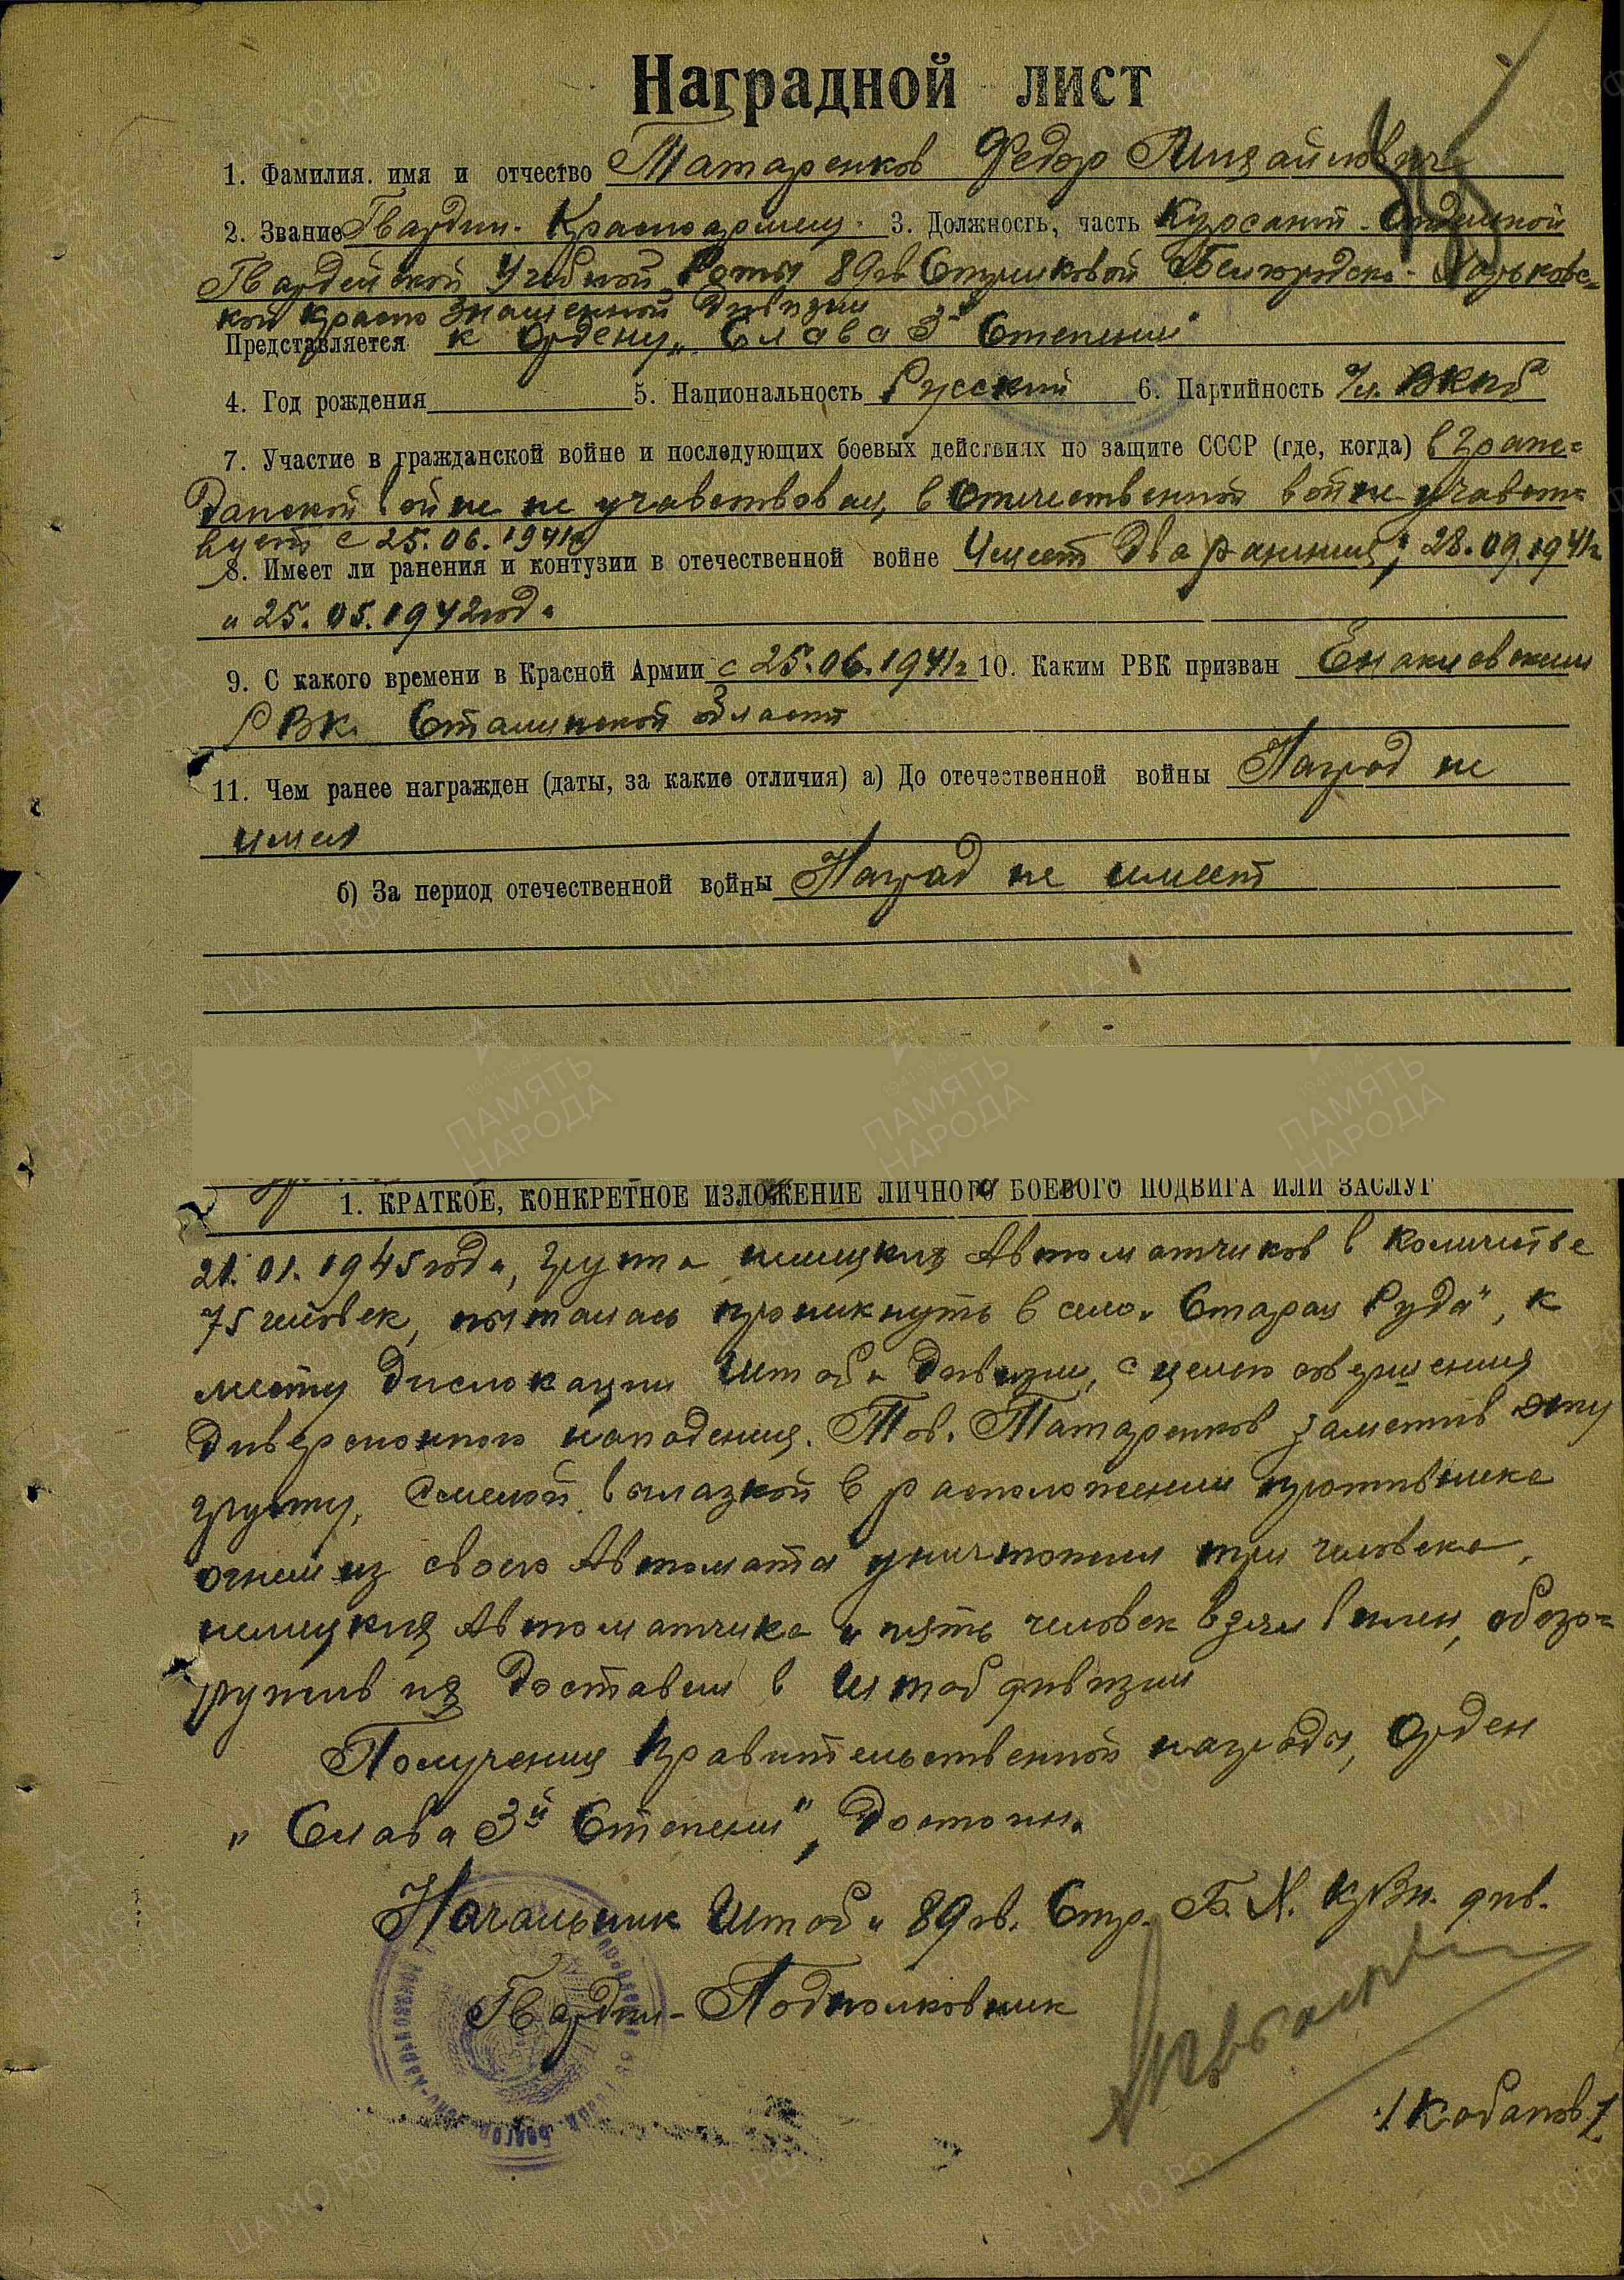 Наградной лист
1. Фамилия, имя и отчество Татаренков Федор Михайлович
2. Звание Гвардии-Красноармеец. 3. Должность, часть Курсант-Отдельной
Гвардейской Учебной Роты 89гв Стрелковой Белгородско-Харьковс=
кой Красно Знаменной Дивизии
Представляется к Ордену „Слава 3й Степени"
4. Год рождения 5. Национальность Русский 6. Партийность Чл. ВКПб
7. Участие в гражданской войне и последующих боевых действиях по защите СССР (где, когда) в Граж=
данской войне не учавствовал, в Отечественной войне учавст=
вует с 25.06.1941г
8. Имеет ли ранения и контузии в отечественной войне Имеет два ранения; 28.09.1941г
и 25.05.1942года
9. С какого времени в Красной Армии с 25.06.1941г 10. Каким РВК призван Енакиевским
РВК. Сталинской област
11. Чем ранее награжден (даты, за какие отличия) а) До отечественной войны Наград не
имел
б) За период отечественной войны Наград не имеет
1. КРАТКОЕ, КОНКРЕТНОЕ ИЗЛОЖЕНИЕ ЛИЧНОГО БОЕВОГО ПОДВИГА ИЛИ ЗАСЛУГ
21.01.1945года, група немецких Автоматчиков в количестве
75 человек, пыталась проникнуть в село „Старая Руда", к
месту дислокации Штаба дивизии, с целью совершения
диверсионного нападения. Тов. Татаренков заметив эту
групу, смелой вылазкой в расположении противника
огнем из своего Автомата уничтожил три человека,
немецких Автоматчика и пять человек взял в плен, обезо=
ружив их доставил в Штаб дивизии
Получения Правительственной награды, Орден
„Слава 3й Степени", Достоин.
Начальник Штаба 89гв. Стр. Б. Х. КрЗн. див.
Гвардии-Подполковник
/Кобанов/
ПАМЯТЬ
НАРОДА
ЦА МО РФ